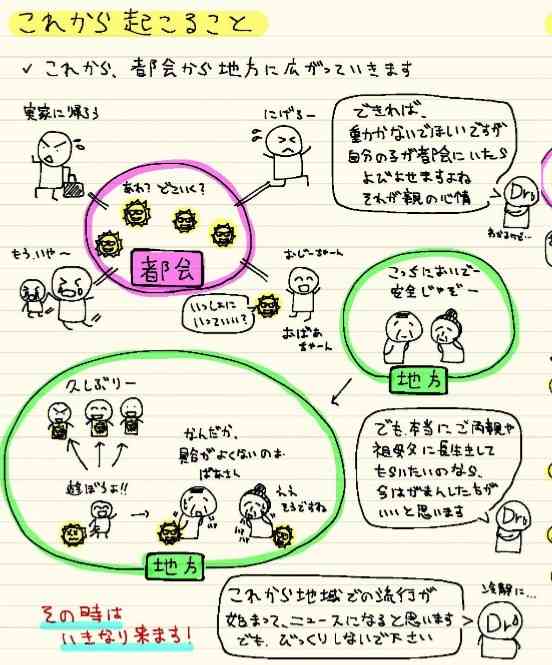 これから起こること
✓ これから、都会から地方に広がっていきます
実家に帰ろう
にげろー
できれば、
動かないでほしいですが
自分の子が都会にいたら
よびよせますよね
それが親の心情
Dr.
わかるけど…
あれ?どこいく?
都会
もういや〜
おじーちゃーん
いっしょに
いっていい?
おばあ
ちゃーん
こっちにおいでー
安全じゃぞー
地方
久しぶりー
なんだか、
具合がよくないのお
ばあさん
遊ぼうよ!!
ええ
そうですね
地方
でも、本当にご両親や
祖父母に長生きして
もらいたいのなら、
今はがまんした方が
いいと思います
Dr.
その時は
いきなり来ます!
これから地域での流行が
始まって、ニュースになると思います
でも、びっくりしないで下さい
冷静に…
Dr.